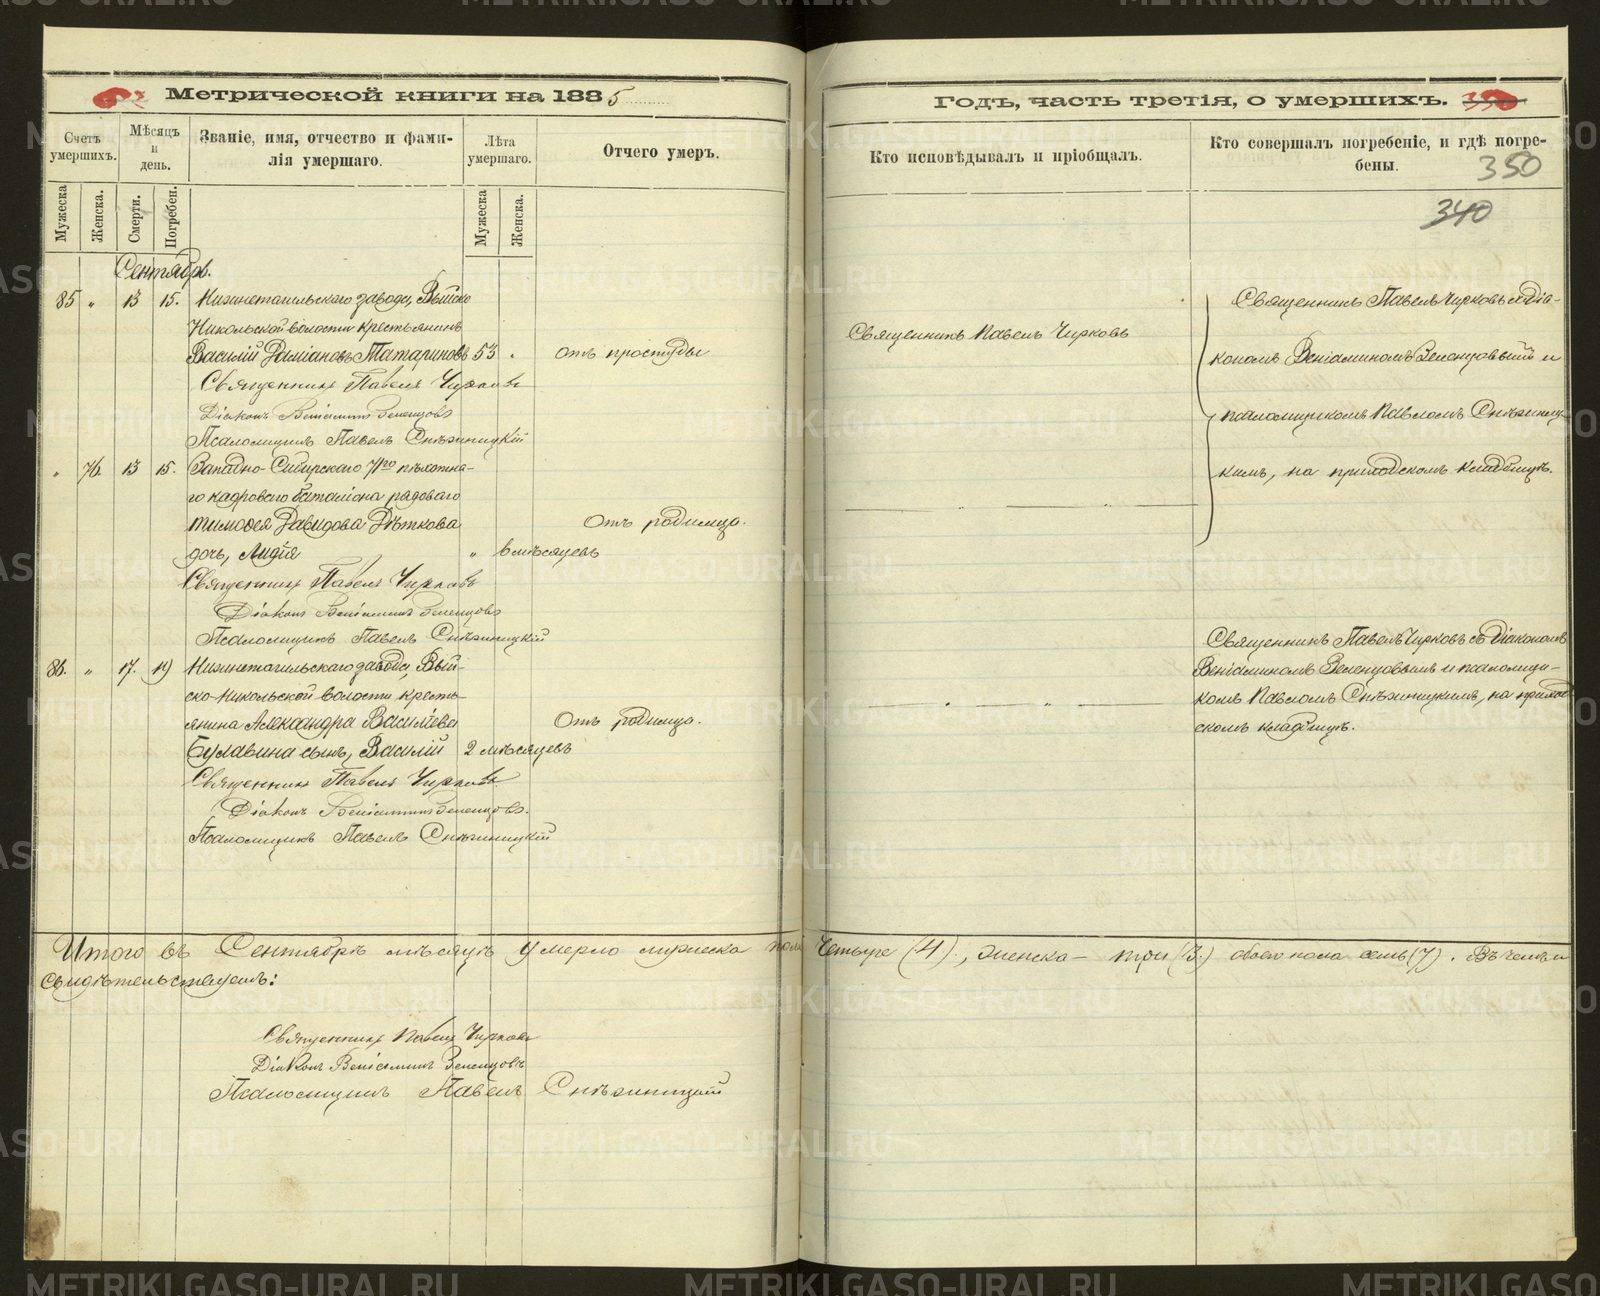 Метрической книги на 1885
Годъ, часть третія, о умершихъ.
350
340
Счетъ умершихъ.
Мѣсяцъ и день.
Званіе, имя, отчество и фами-
лія умершаго.
Лѣта умершаго.
Отчего умеръ.
Кто исповѣдывалъ и пріобщалъ.
Кто совершалъ погребеніе, и гдѣ погре-
бены.
Мужеска
Женска.
Смерти.
Погребен.
Мужеска
Женска.
Сентябрь.
85 „ 13 15. Нижнетагильскаго завода, Выйско
Никольской волости крестьянинъ
Василій Даміановъ Татариновъ 53 „ отъ простуды
Священникъ Павелъ Чирковъ
Діаконъ Веніаминъ Зеленцовъ
Псаломщикъ Павелъ Снѣжницкій
Священникъ Павелъ Чирковъ
Священникъ Павелъ Чирковъ съ діа-
кономъ Веніаминомъ Зеленцовымъ и
псаломщикомъ Павломъ Снѣжниц-
кимъ, на приходскомъ кладбищѣ.
„ 76 13 15. Западно-Сибирскаго 7го пѣхотна-
го кадроваго баталіона рядоваго
Тимофея Давидова Дѣткова
дочь, Лидія „ 6 мѣсяцевъ
Отъ родимца.
Священникъ Павелъ Чирковъ
Діаконъ Веніаминъ Зеленцовъ
Псаломщикъ Павелъ Снѣжницкій
86. „ 17. 19 Нижнетагильскаго завода, Вый-
ско-Никольской волости кресть-
янина Александра Васильева
Булавина сынъ, Василій 2 мѣсяцевъ
Отъ родимца.
Священникъ Павелъ Чирковъ
Діаконъ Веніаминъ Зеленцовъ.
Псаломщикъ Павелъ Снѣжницкій
Священникъ Павелъ Чирковъ съ діакономъ
Веніаминомъ Зеленцовымъ и псаломщи-
комъ Павломъ Снѣжницкимъ, на приход-
скомъ кладбищѣ.
Итого въ Сентябрѣ мѣсяцѣ умерло мужеска пола четыре (4), женска - три (3.) обоего пола семь (7). Въ чемъ и
свидѣтельствуемъ:
Священникъ Павелъ Чирковъ
Діаконъ Веніаминъ Зеленцовъ
Псаломщикъ Павелъ Снѣжницкій
METRIKI.GASO-URAL.RU